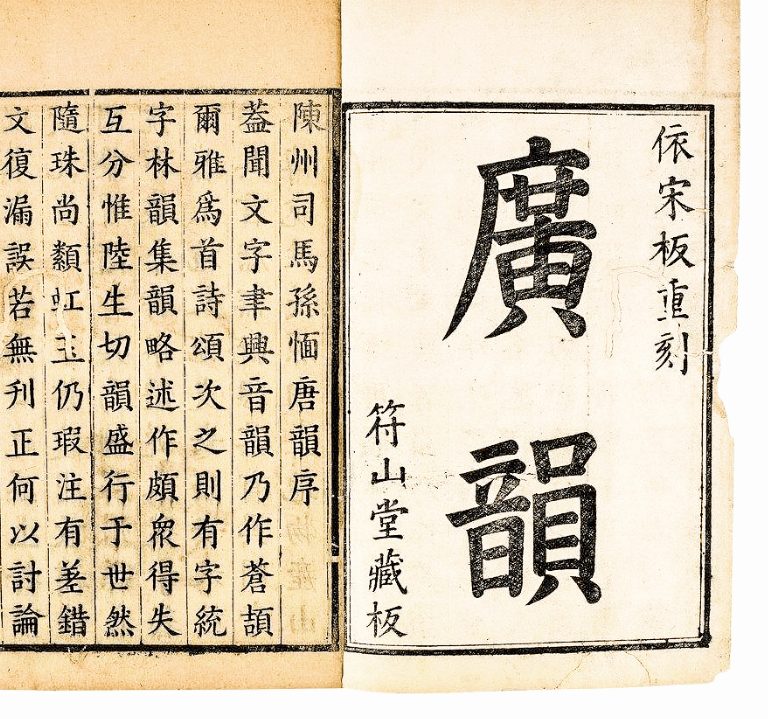 依宋板重刻
廣韻
符山堂藏板
陳州司馬孫愐唐韻序
葢聞文字聿興音韻乃作蒼頡
爾雅爲首詩頌次之則有字統
字林韻集韻略述作頗衆得失
互分惟陸生切韻盛行于世然
隨珠尚纇虹玉仍瑕注有差錯
文復漏誤若無刋正何以討論